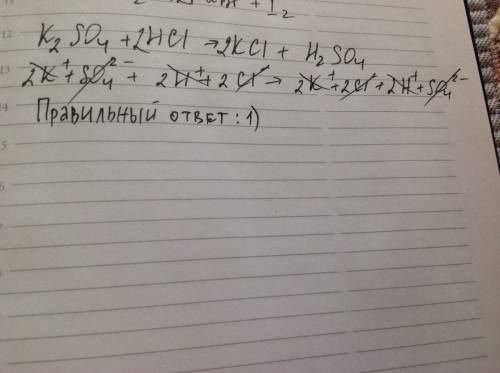 12
K₂SO₄ + 2HCl → 2KCl + H₂SO₄
13
2K⁺ + SO₄²⁻ + 2H⁺ + 2Cl⁻ → 2K⁺ + 2Cl⁻ + 2H⁺ + SO₄²⁻
14
Правильный ответ: 1)